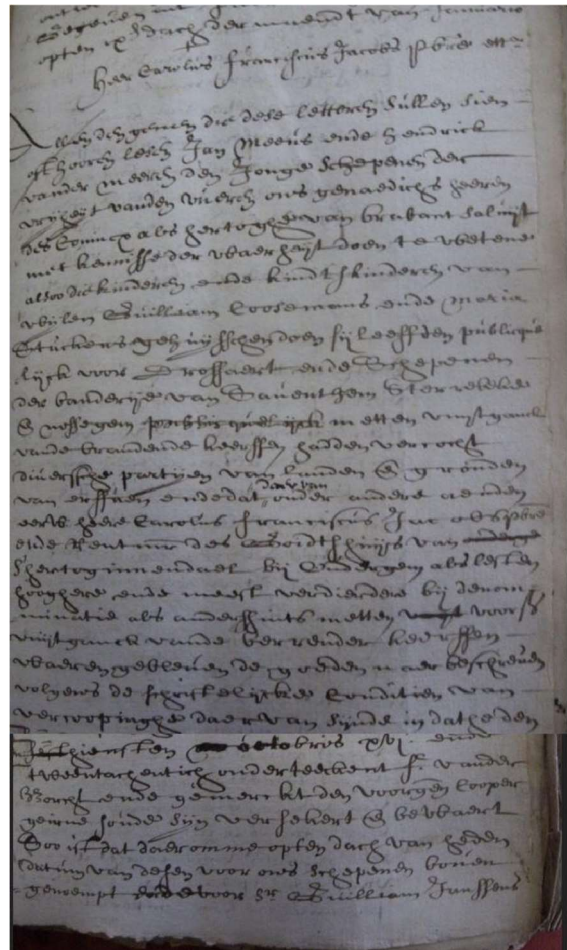 Gegeven
opten ix dach der maendt van Januario
Her Carolus Franciscus Jacobs pbre ett
Allen den genen die dese letteren sullen sien
oft hooren lesen Jan Meeus ende Hendrick
vander Meeren den Jonge Schepenen der
vryheyt vanden ons genaedichs heeren
des Conincx als hertoghe van brabant saluyt
met kennisse der waerheyt doen te wetene
alsoo die kinderen ende kindtskinderen van
wylen Guilliaam Coosemans ende Maria
Stuckens gehuysschen doen sy leeffden publicque
lyck voor Drossaert ende Schepenen
der banderye van Saventhem Sterrebeke
& nosseghem metten vuytganck
vande brandende keerssen hadden vercocht
diversche partyen van landen & gronden
van erffven ende dat daer van onder andere aenden
eerw heere Carolus Franciscus Jacobs pbre
ende Rentmr des Godtshuys van
Shertoginnendael by als lesten
hooghere ende meest verdierdere by denomi
minatie als anderssints metten voorss
vuytganck vande berrender keerssen
waeren gebleven de goeden naer beschreven
volgens de schriftelycke Conditien van
vercoopinghe daer van synde in dathe den
thiensten octobris xvj ende
tweentachentich onderteeckent F. vander
Borcht ende gemerckt den voorgen Cooper
geirne soude syn versekert & bewaert
Soo ist dat daeromme opten dach van heden
datum van desen voor ons Schepenen boven
genoempt voor Sr Guilliam Janssens